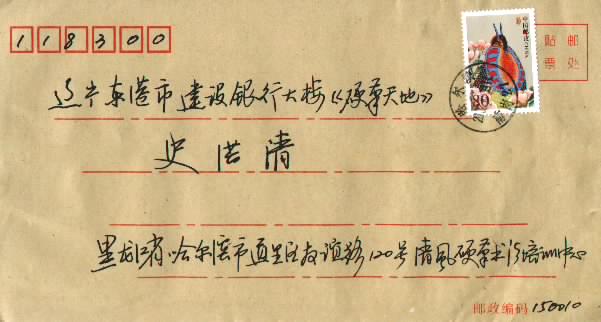 118300
中国邮政
80
贴邮
票处
辽宁东港市建设银行大楼《硬笔天地》
史洪清
黑龙江省哈尔滨市道里区友谊路120号清风硬笔书法培训中心
邮政编码 150010